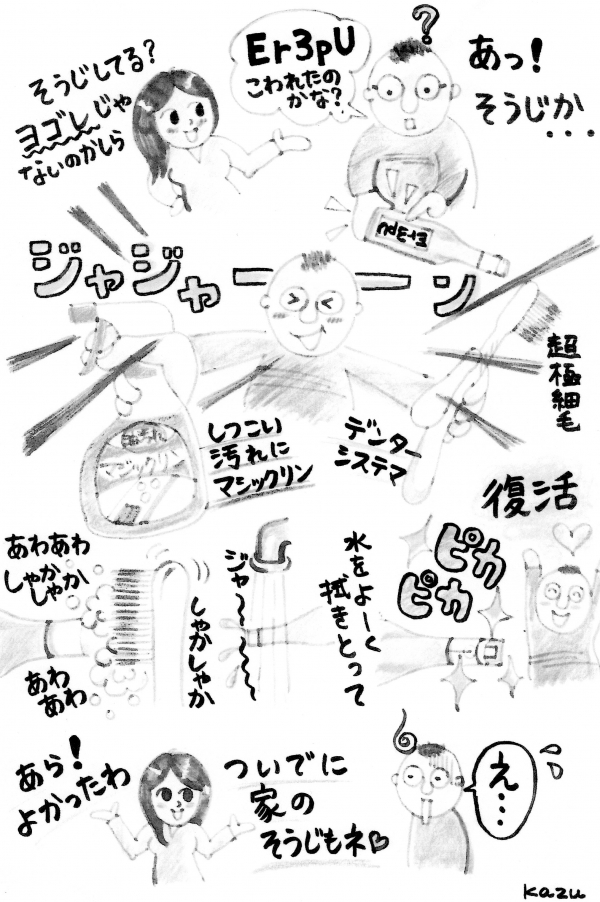 そうじしてる?
ヨゴレじゃ
ないのかしら
Er3pU
こわれたの
かな?
?
あっ!
そうじか
・・・
Er3pU
ジャジャーーン
マジックリン
しつこい
汚れに
マジックリン
デンター
システマ
超極細毛
復活
あわあわ
しゃか
しゃか
あわ
あわ
しゃかしゃか
ジャ〜〜〜
水をよーく
拭きとって
ピカ
ピカ
あら!
よかったわ
ついでに
家の
そうじもネ♡
え…
kazu